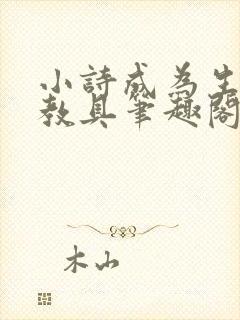 小詩成為生
教具筆趣閣
木山